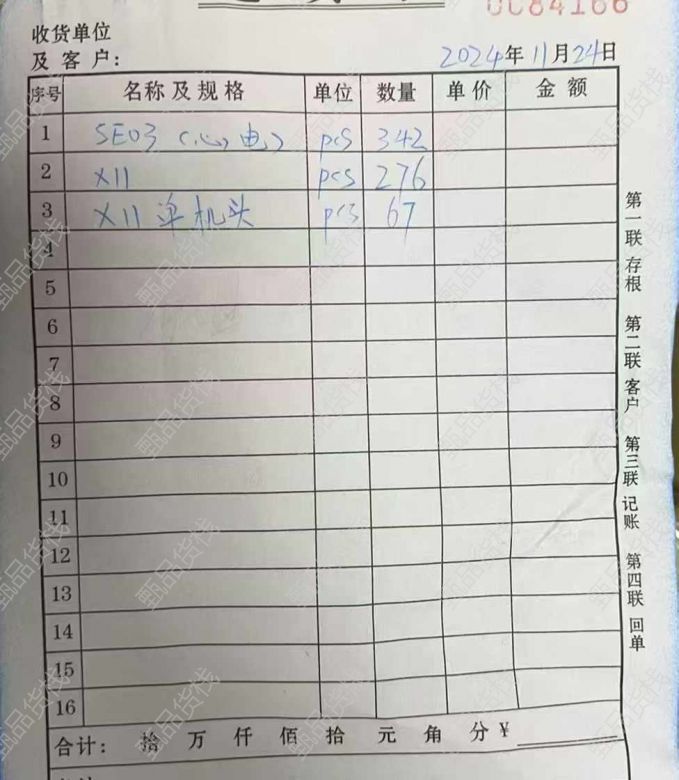 0084166
收货单位
及客户: 2024年11月24日
序号 名称及规格 单位 数量 单价 金额
1 SE03 (心电) pcs 342
2 X11 pcs 276
3 X11 单机头 pcs 67
4
5
6
7
8
9
10
11
12
13
14
15
16
合计: 拾 万 仟 佰 拾 元 角 分 ¥
第一联 存根
第二联 客户
第三联 记账
第四联 回单
甄品货栈